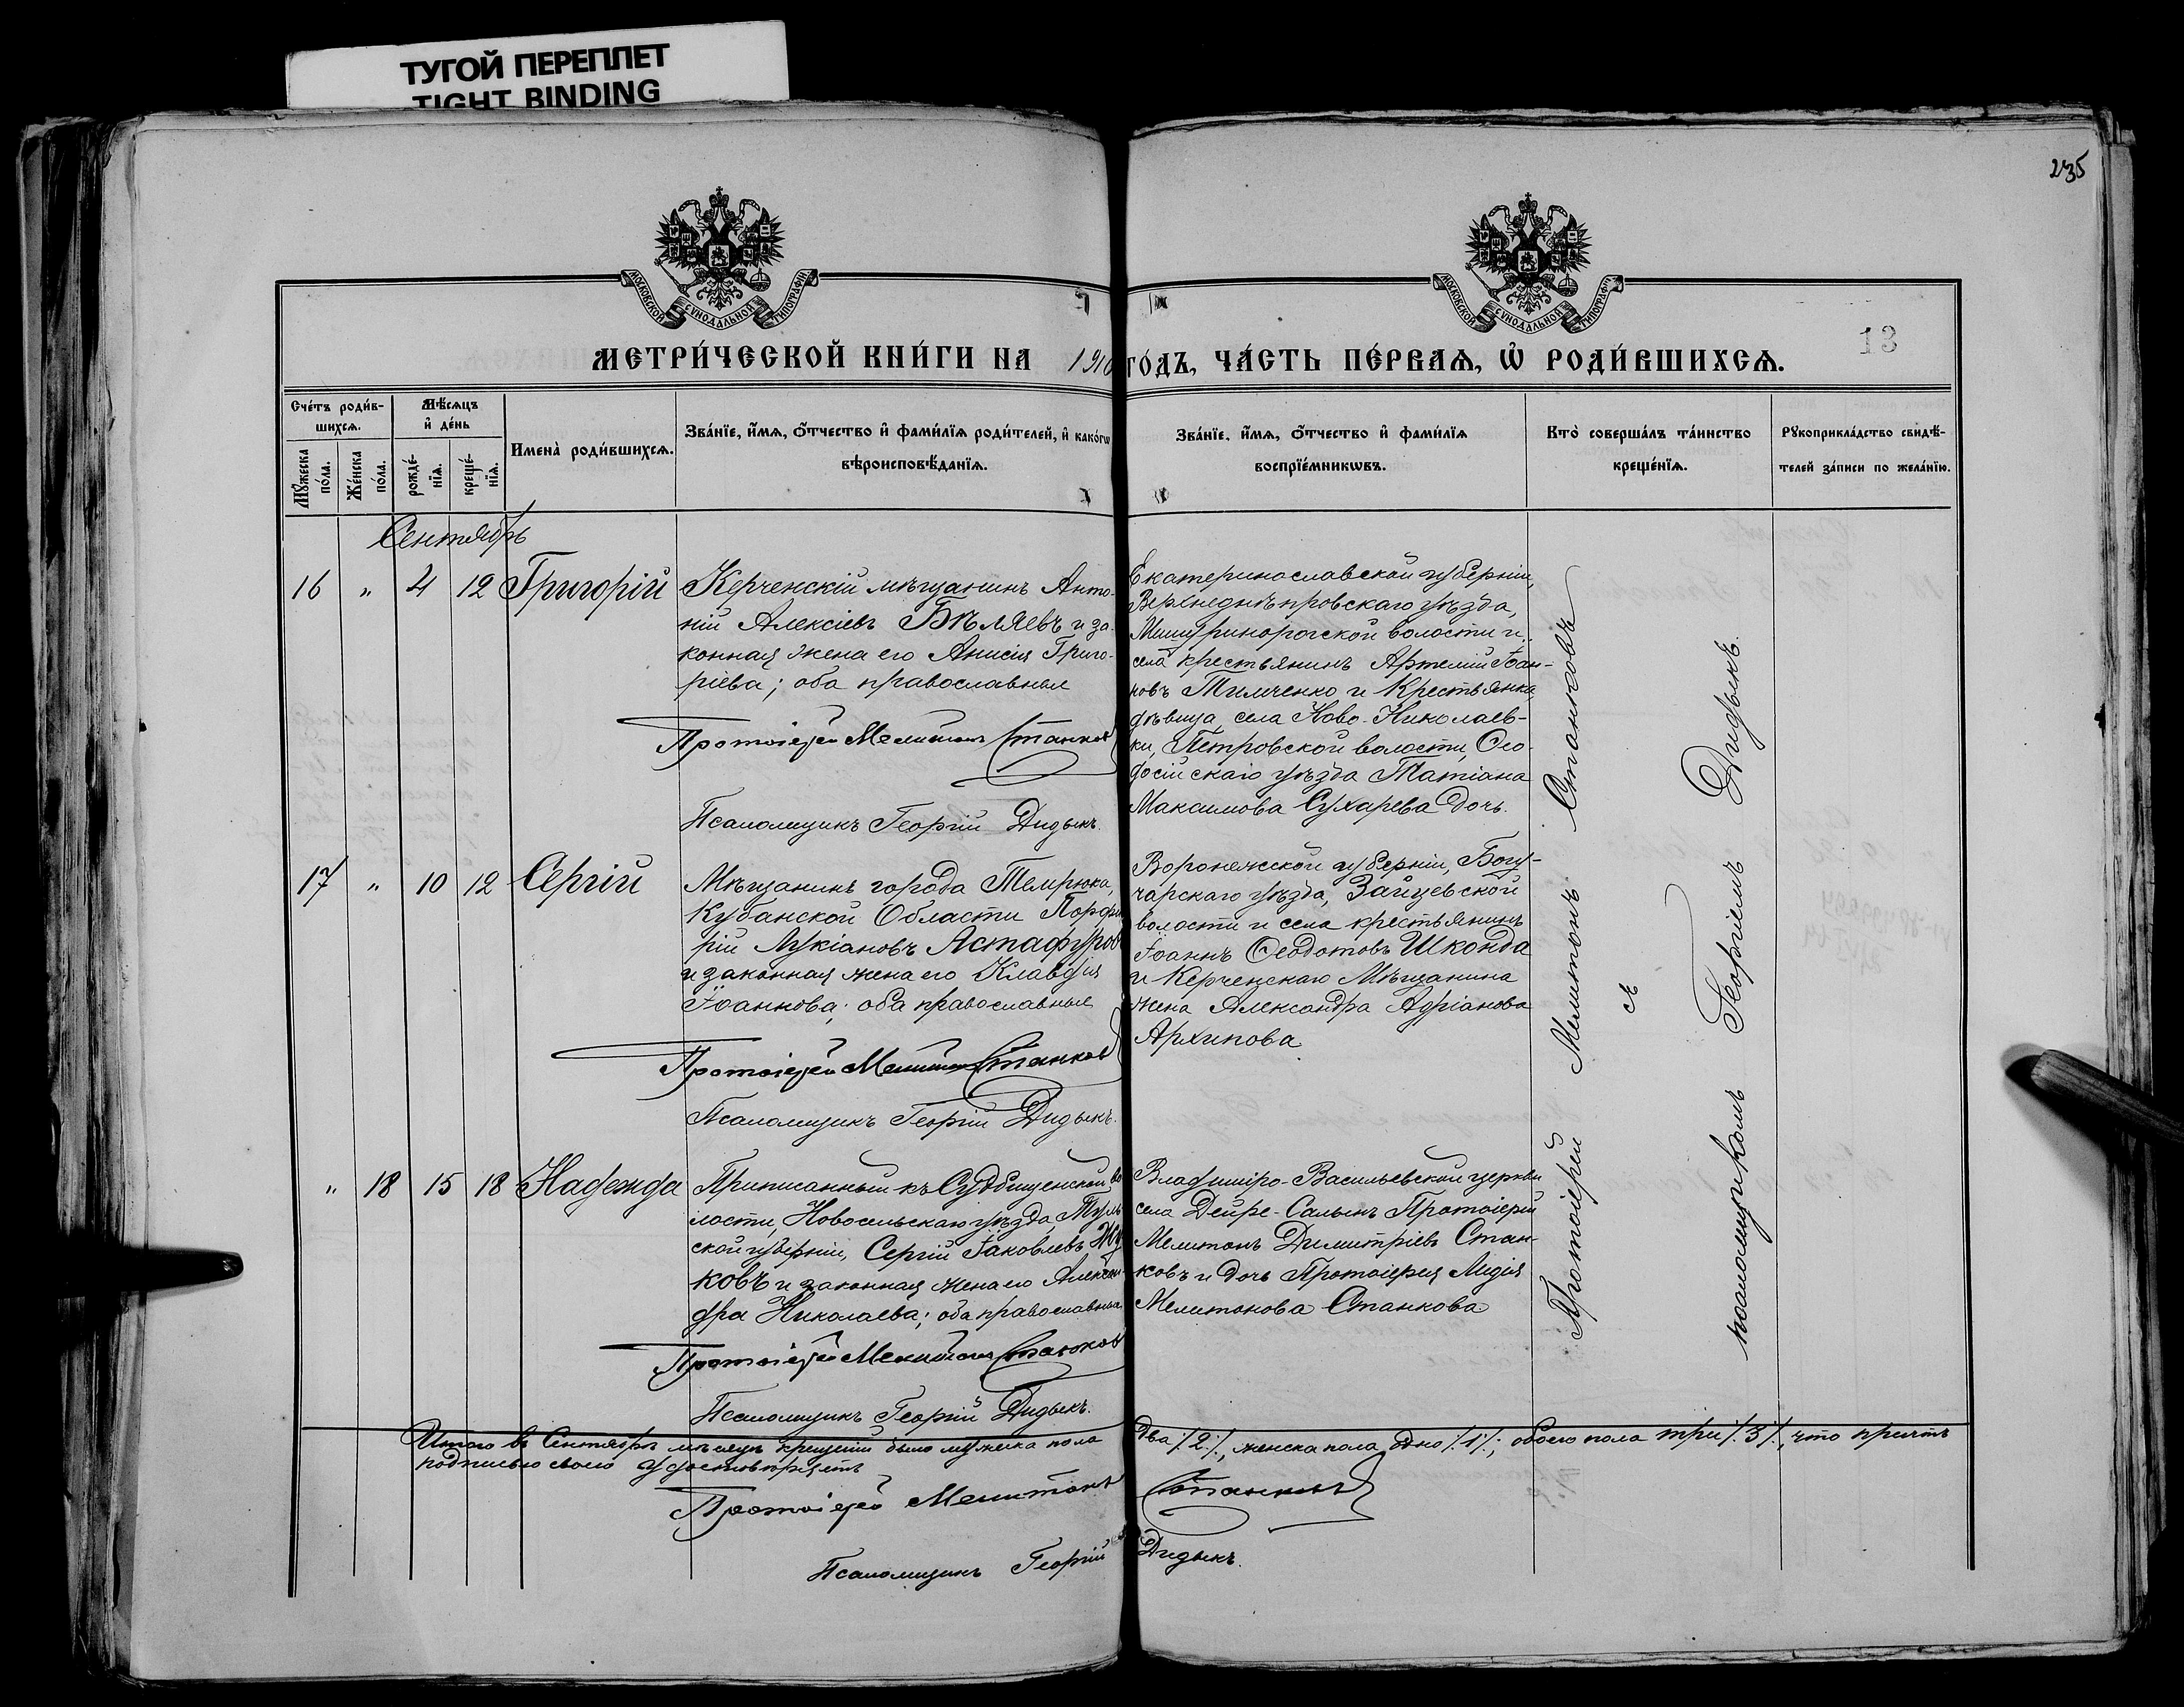 ТУГОЙ ПЕРЕПЛЕТ
TIGHT BINDING
235
13
МОСКОВСКОЙ СѴНОДАЛЬНОЙ ТИПОГРАФІИ
МОСКОВСКОЙ СѴНОДАЛЬНОЙ ТИПОГРАФІИ
МЕТРИ́ЧЕСКОЙ КНИ́ГИ НА 1910 ГО́ДЪ, ЧА́СТЬ ПЕ́РВАѦ, Ѡ҆ РОДИ́ВШИХСѦ.
Сче́тъ роди́в-
шихсѧ.
Мꙋ́жеска по́ла.
Же́нска по́ла.
Мѣ́сѧцъ
и҆ де́нь
рожде́-
нїѧ.
креще́-
нїѧ.
Имена̀ роди́вшихсѧ.
Зва́нїе, и҆́мѧ, ѻ҆́тчество и҆ фами́лїѧ роди́телей, и҆ како́гѡ
вѣроисповѣ́данїѧ.
Зва́нїе, и҆́мѧ, ѻ҆́тчество и҆ фами́лїѧ
воспрїе́мникѡвъ.
Кто̀ соверша́лъ та́инство
креще́нїѧ.
Рꙋкоприкла́дство свидѣ́-
телей за́писи по жела́нїю.
Сентябрь
16 " 4 12 Григорій
Керченскій мѣщанинъ Анто-
ній Алексіевъ Бѣляевъ и за-
конная жена его Анисія Григо-
ріева; оба православные
Протоіерей Мелитонъ Станковъ
Псаломщикъ Георгій Дидыкъ.
Екатеринославской губерніи,
Верхнеднѣпровскаго уѣзда,
Мишуринорогской волости и
села крестьянинъ Артемій Іоан-
новъ Тимченко и Крестьянка,
дѣвица села Ново-Николаев-
ки, Петровской волости, Ѳео-
досійскаго уѣзда Татіана
Максимова Сухарева дочь.
17 " 10 12 Сергій
Мѣщанинъ города Темрюка,
Кубанской Области Порфи
рій Лукіановъ Астафуровъ
и законная жена его Клавдія
Іоаннова; оба православные
Протоіерей Мелитонъ Станковъ
Псаломщикъ Георгій Дидыкъ.
Воронежской губерніи, Богу-
чарскаго уѣзда, Зайцевской
волости и села крестьянинъ
Іоаннъ Ѳеодотовъ Шконда
и Керченскаго Мѣщанина
жена Александра Адріанова
Архипова
" 18 15 18 Надежда
Приписанный къ Судбищенской во
лости, Новосильскаго уѣзда, Туль
ской губерніи, Сергій Іаковлевъ Жу
ковъ и законная жена его Алексан-
дра Николаева; оба православные
Протоіерей Мелитонъ Станковъ
Псаломщикъ Георгій Дидыкъ.
Владиміро-Васильевской церкви
села Дейре-Салынъ Протоіерей
Мелитонъ Димитріевъ Стан-
ковъ и дочь Протоіерея Лидія
Мелитонова Станкова
Протоіерей Мелитонъ Станковъ
съ
псаломщикомъ Георгіемъ Дидыкъ.
Итого въ Сентябрѣ мѣсяцѣ крещеній было мужеска пола два /.2./, женска пола одно /.1./, обоего пола три /.3./, что причтъ
подписью своею удостовѣряетъ
Протоіерей Мелитонъ Станковъ
Псаломщикъ Георгій Дидыкъ.